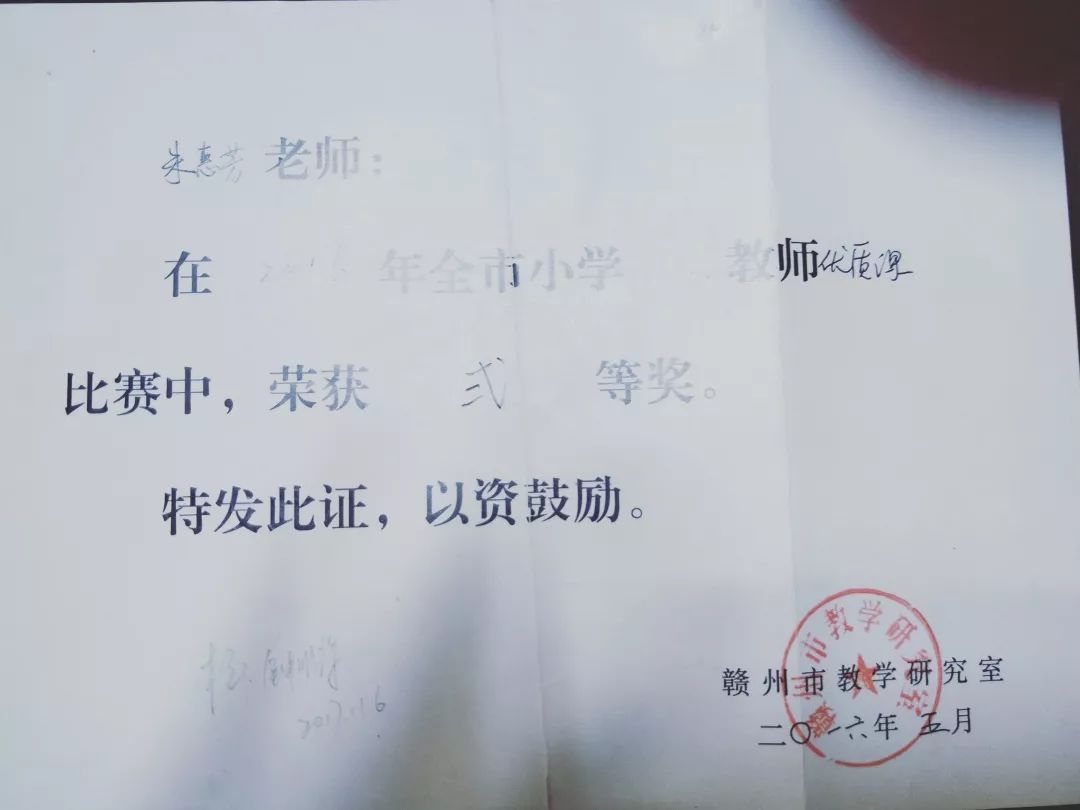 朱惠芳老师：
在 年全市小学 教师优质课
比赛中，荣获 弍 等奖。
特发此证，以资鼓励。
赣州市教学研究室
赣州市教学研究室
二〇一六年五月
2017.1.16